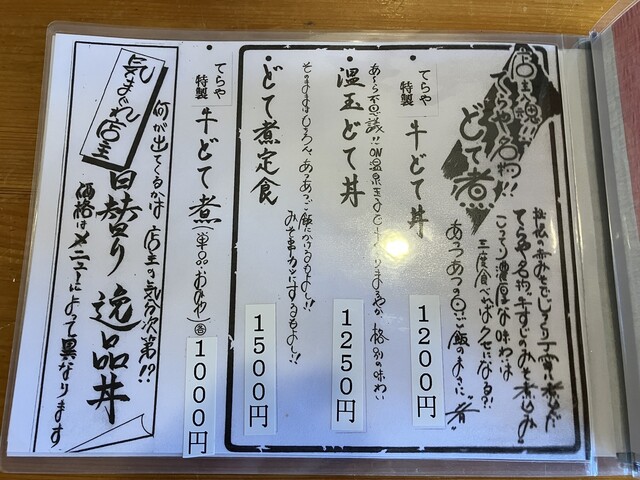 店主魂!!
てらや名物!!
どて煮
秘伝の赤みそでじっくり丁寧に煮込んだ
てらや名物、牛すじのみそ煮込み
こってり濃厚な味わいは
三度食べればクセになる!?
あつあつの白いご飯のよきに"肴"
・てらや特製 牛どて丼 1200円
あ〜ら不思議!!ON温泉玉
まろやか、格別の味わい
・温玉どて丼 1250円
そのままでもよし
あつあつご飯にかけるもよし!!
みそ串カツにするもよし!!
・どて煮定食 1500円
・てらや特製 牛どて煮(単品・おかわり) 各 1000円
気まぐれ店主
日替り逸品丼
何が出てくるかは 店主の気分次第!?
価格はメニューによって異なります